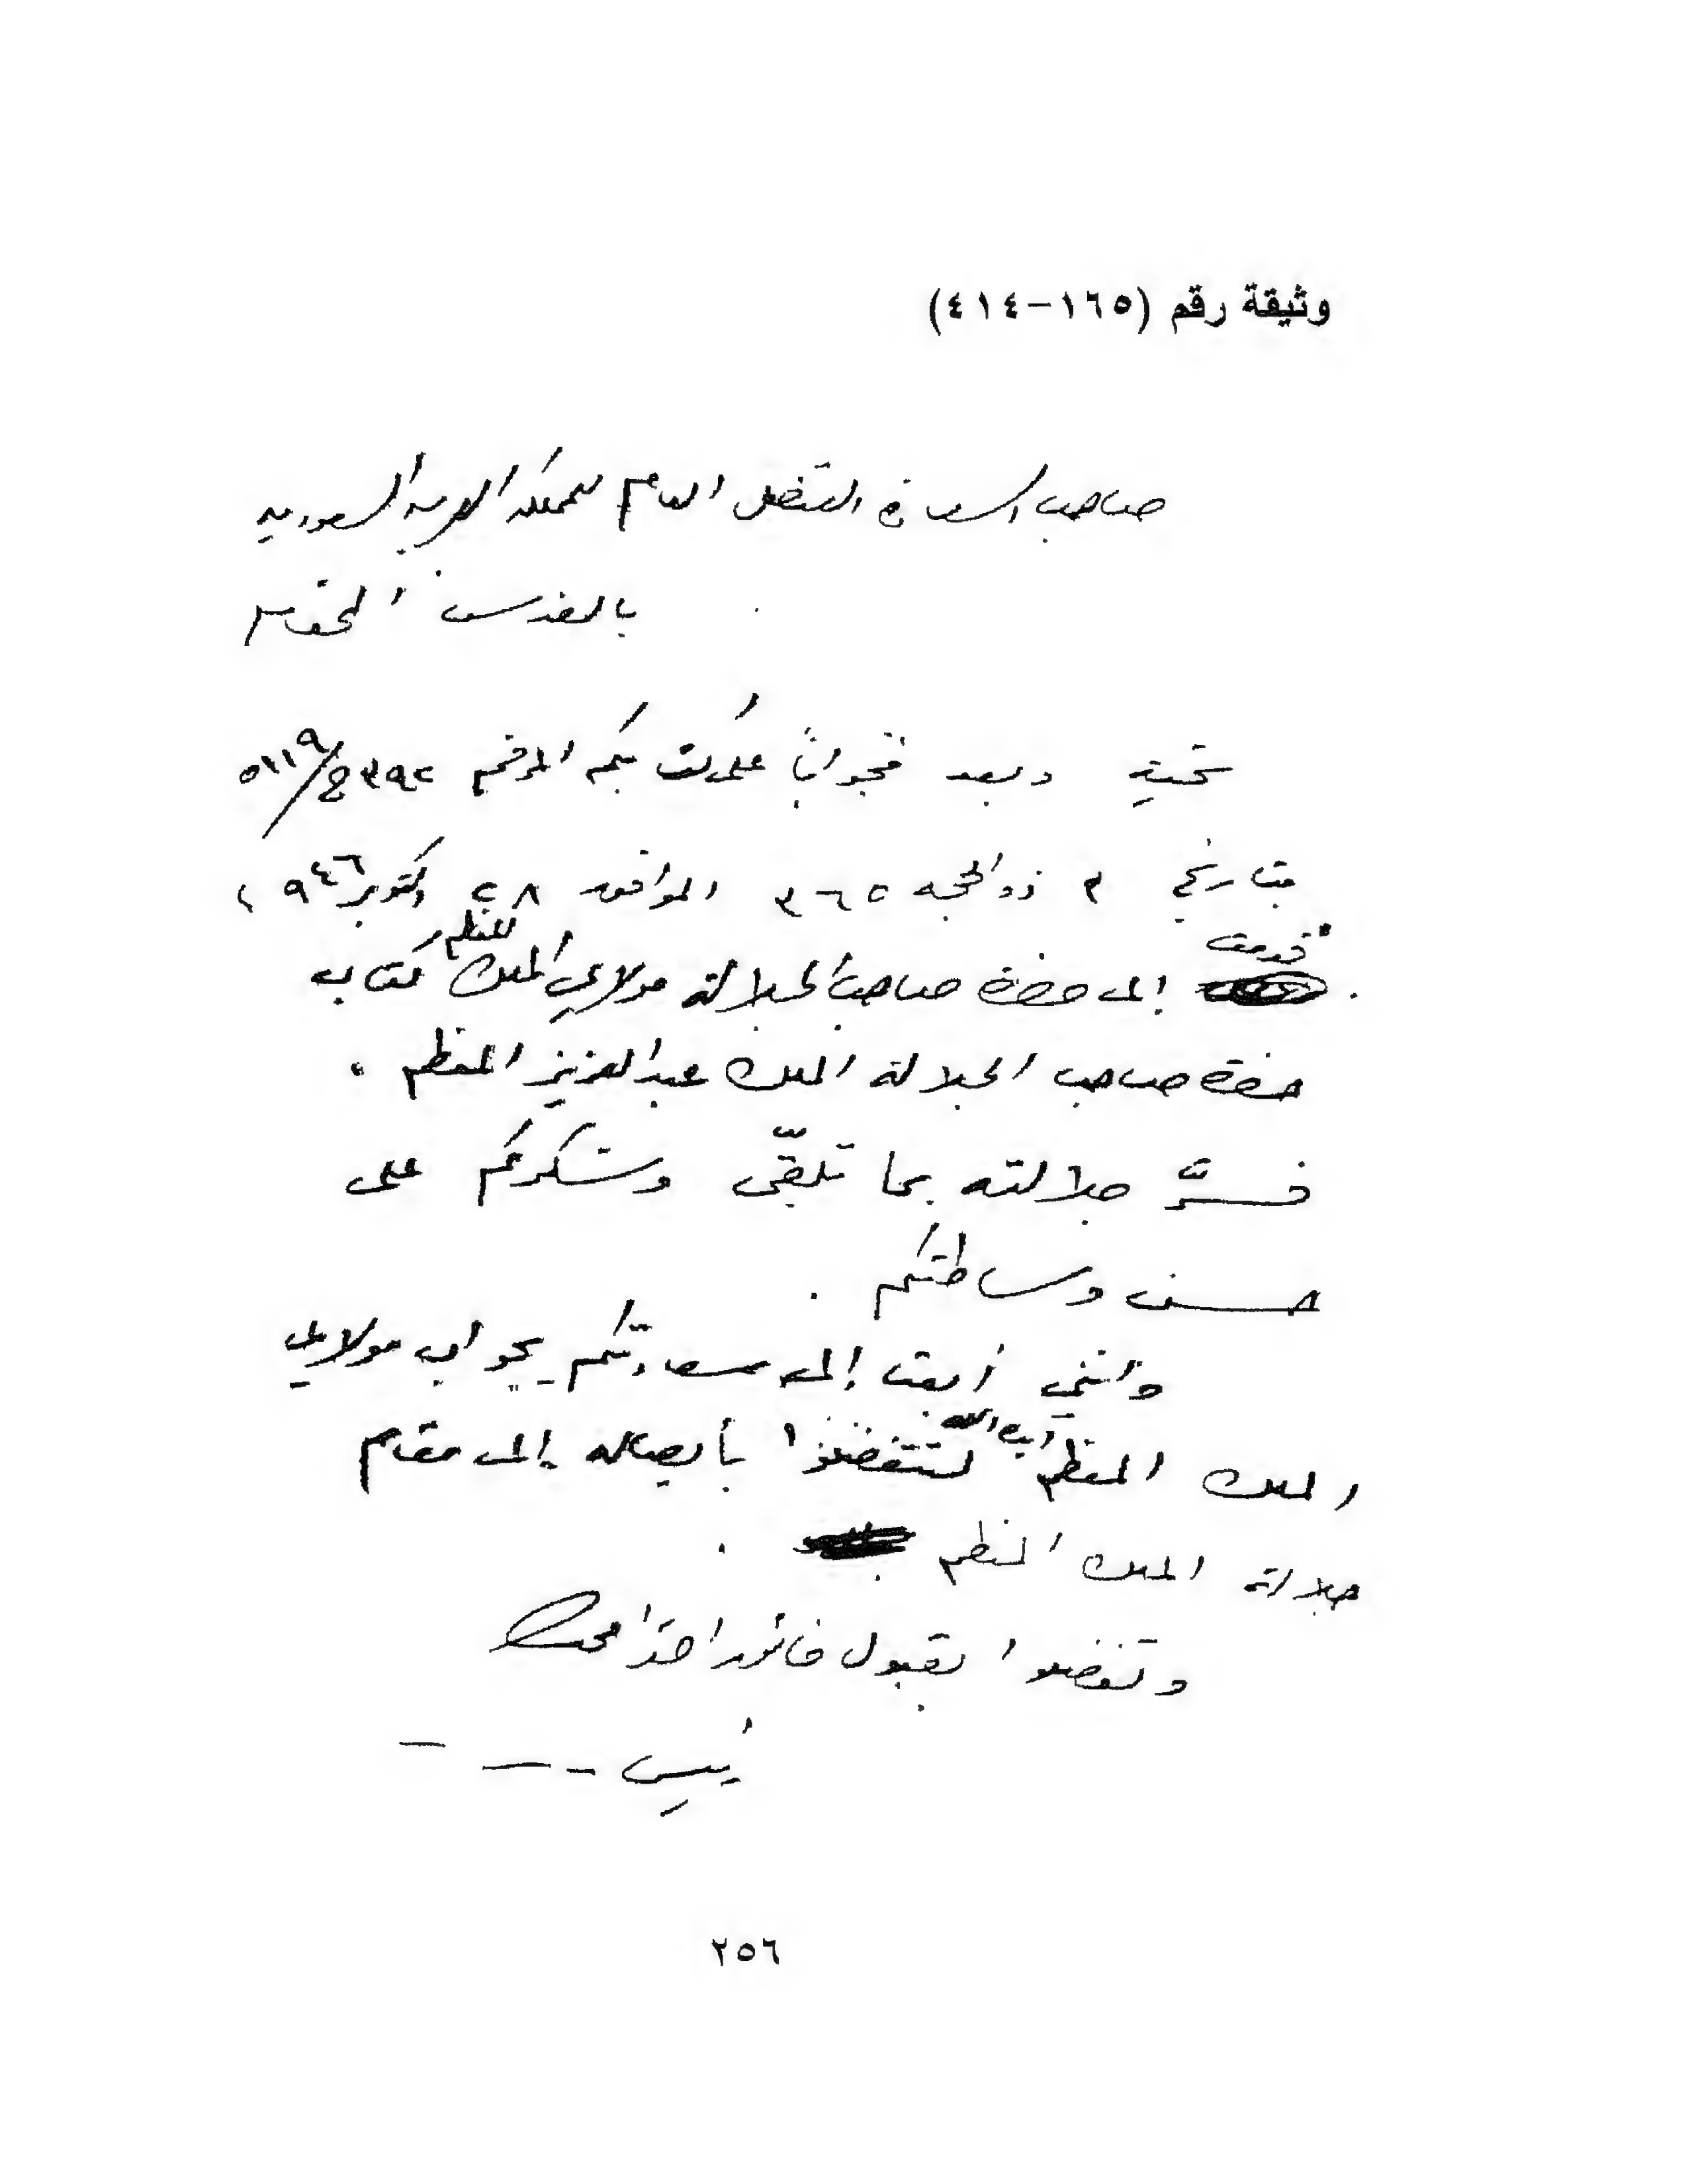 وثيقة رقم (١٦٥-٤١٤)
صاحب السعادة القنصل العام للمملكة العربية السعودية
بالقدس المحترم
تحية وبعد فجواباً على كتابكم المرقم ٣٩٢
بتاريخ ٣ ذو الحجه ٣٦٥ الموافق ٢٨ اكتوبر ٩٤٦
قدمت إلى حضرة صاحب الجلالة مولاي الملك المعظم كتاب
حضرة صاحب الجلالة الملك عبد العزيز المعظم .
فسرَّ جلالته بما تلقّى وشكركم على
حسن وساطتكم .
وانني أبعث إلى سعادتكم بجواب مولاي
الملك المعظم أيده الله لتتفضلوا بأيصاله إلى مقام
جلالة الملك المعظم .
وتفضلوا بقبول فائق احترامي
رئيس
٢٥٦